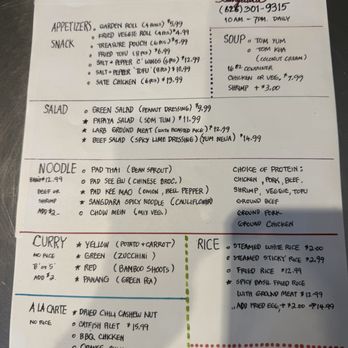 (828)301-9315
10AM - 7PM. DAILY
APPETIZERS
SNACK
GARDEN ROLL (4 PCS) $5.99
FRIED VEGGIE ROLL (4 PCS) $4.99
TREASURE POUCH (6 PCS) $5.99
FRIED TOFU (8 PCS) $6.99
SALT + PEPPER C' WINGS $12.99
SALT + PEPPER TOFU $12.99
SATE CHICKEN (6 PCS) $13.99
SOUP
TOM YUM
TOM KHA
(COCONUT CREAM)
16 OZ
CHICKEN OR VEG, $7.99
SHRIMP + $3.00
SALAD
GREEN SALAD (PEANUT DRESSING) $9.99
* PAPAYA SALAD (SOM TUM) $11.99
* LARB GROUND MEAT (WITH ROASTED RICE) $12.99
* BEEF SALAD (SPICY LIME DRESSING) (YUM NEUA) $14.99
NOODLE
$12.99
BEEF OR
SHRIMP
ADD $2-
PAD THAI (BEAN SPROUT)
PAD SEE EU (CHINESE BROC.)
* PAD KEE MAO (ONION, BELL PEPPER)
* SANGDARA SPICY NOODLE (CAULIFLOWER)
CHOW MEIN (MIX VEG.)
CHOICE OF PROTEIN:
CHICKEN, PORK, BEEF,
SHRIMP, VEGGIE, TOFU
GROUND BEEF
GROUND PORK
GROUND CHICKEN
CURRY
NO RICE
"B" OR "S"
ADD $2
* YELLOW (POTATO + CARROT)
* GREEN (ZUCCHINI)
* RED (BAMBOO SHOOTS)
* PANANG (GREEN PEA)
RICE
STEAMED WHITE RICE $2.00
STEAMED STICKY RICE $2.99
FRIED RICE $12.99
* SPICY BASIL FRIED RICE
WITH GROUND MEAT $12.99
ADD FRIED EGG + $2.00 → $14.99
A LA CARTE
NO RICE
* DRIED CHILI CASHEW NUT
CATFISH FILET $15.99
BBQ CHICKEN